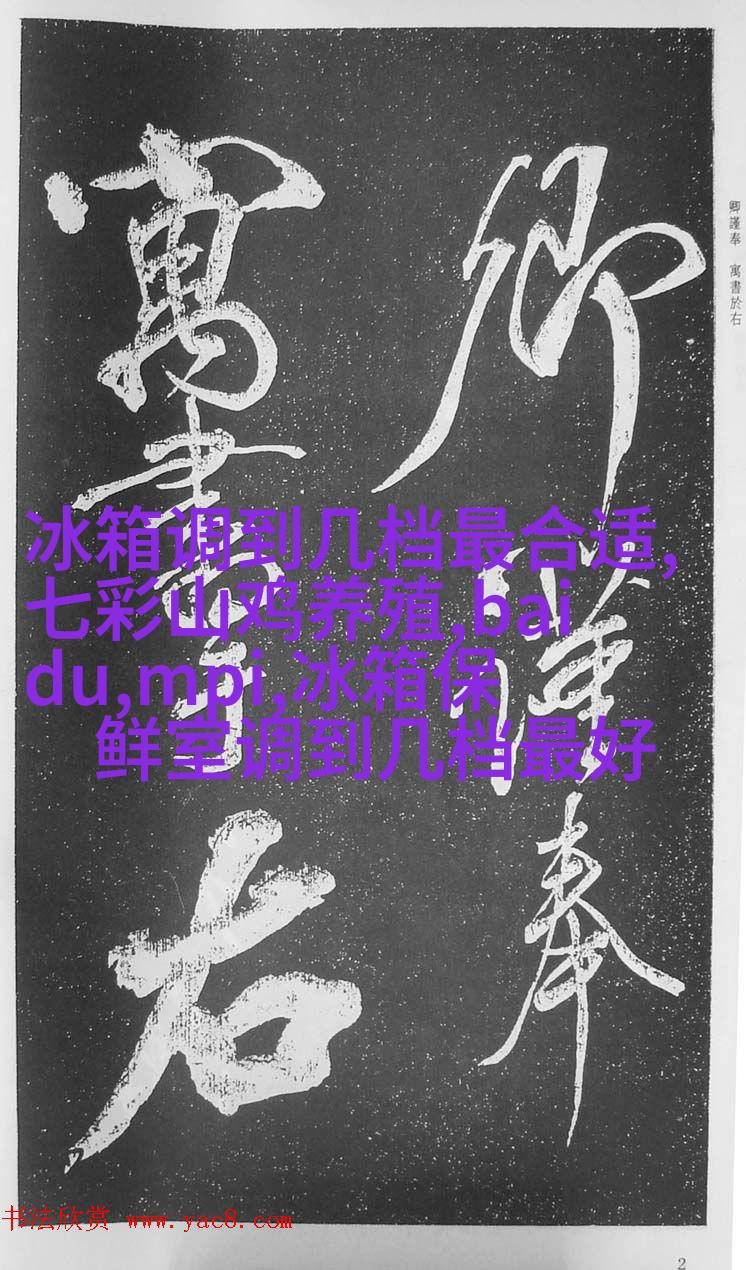 卿謹奉
寓書於右
卿謹奉 寓書於右
冰箱调到几档最合适,
七彩山鸡养殖,bai
du,mpi,冰箱保
鲜室调到几档最好
书法欣赏 www.yac8.com
2